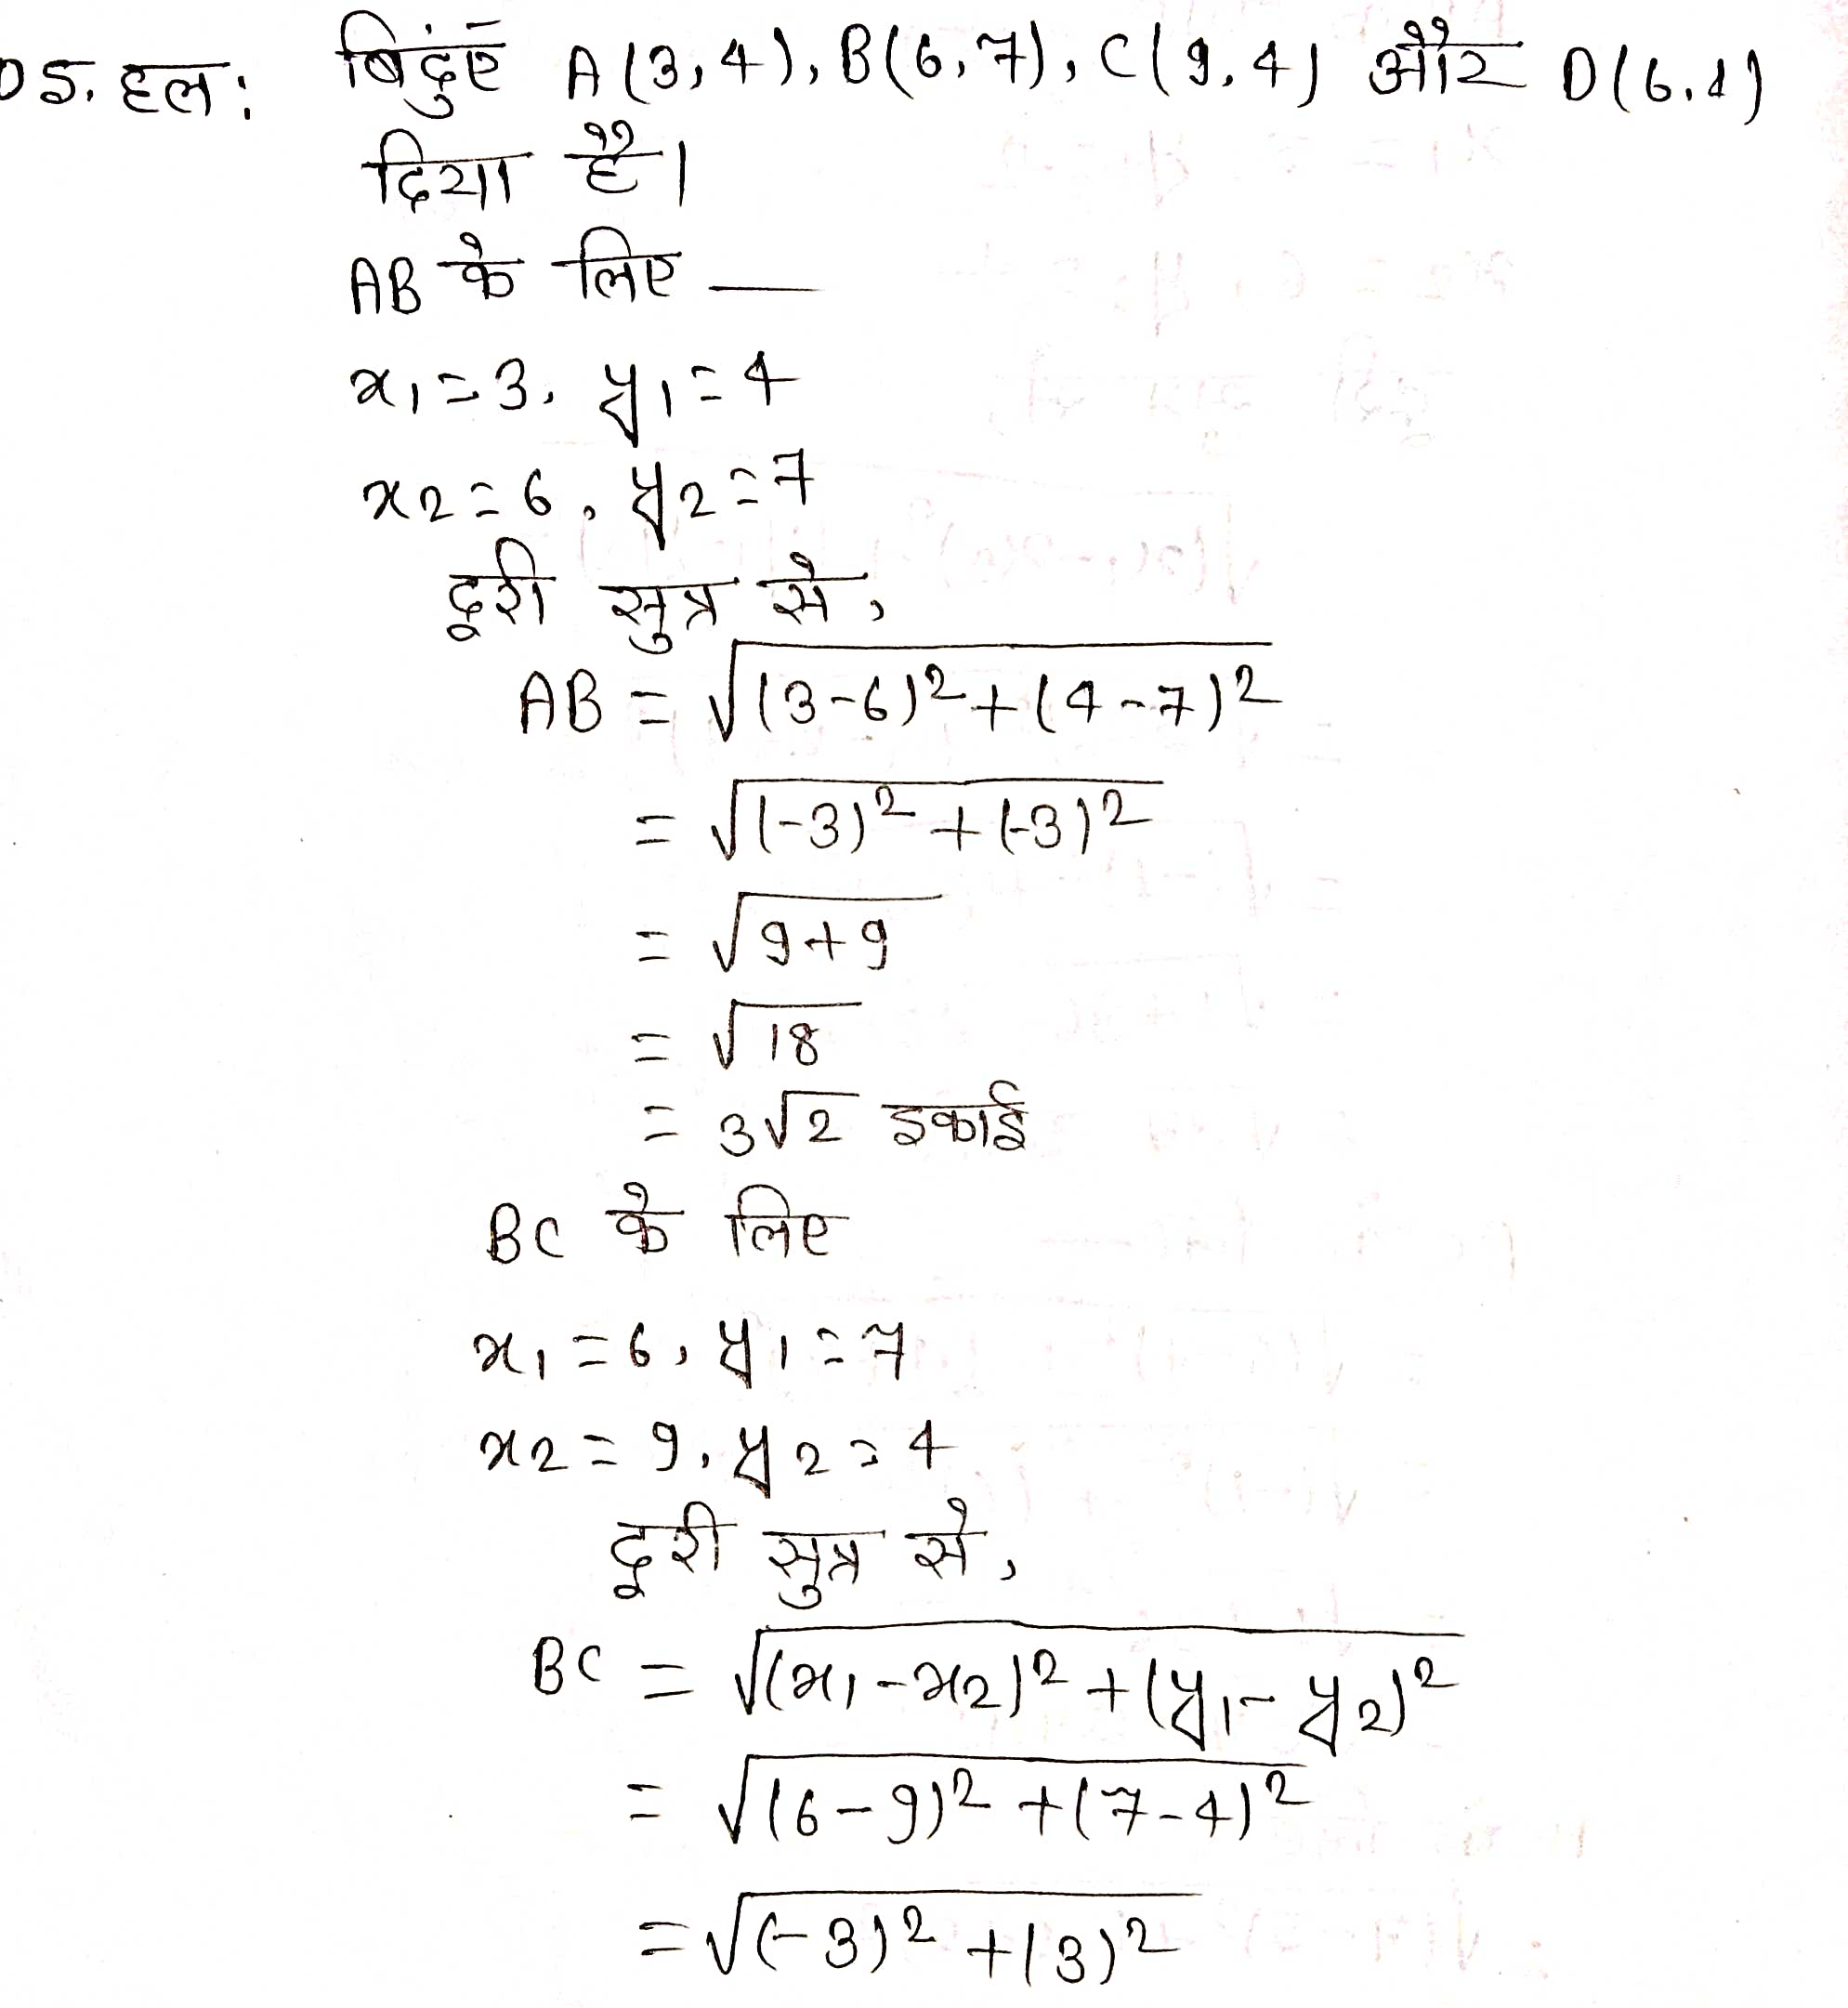 05. हल: बिंदुएँ A(3,4), B(6,7), C(9,4) और D(6,1)
दिया है।
AB के लिए —
x1=3, y1=4
x2=6, y2=7
दूरी सुत्र से,
AB = √(3-6)²+(4-7)²
= √(-3)²+(-3)²
= √9+9
= √18
= 3√2 इकाई
BC के लिए
x1=6, y1=7
x2=9, y2=4
दूरी सुत्र से,
BC = √(x1-x2)²+(y1-y2)²
= √(6-9)²+(7-4)²
= √(-3)²+(3)²